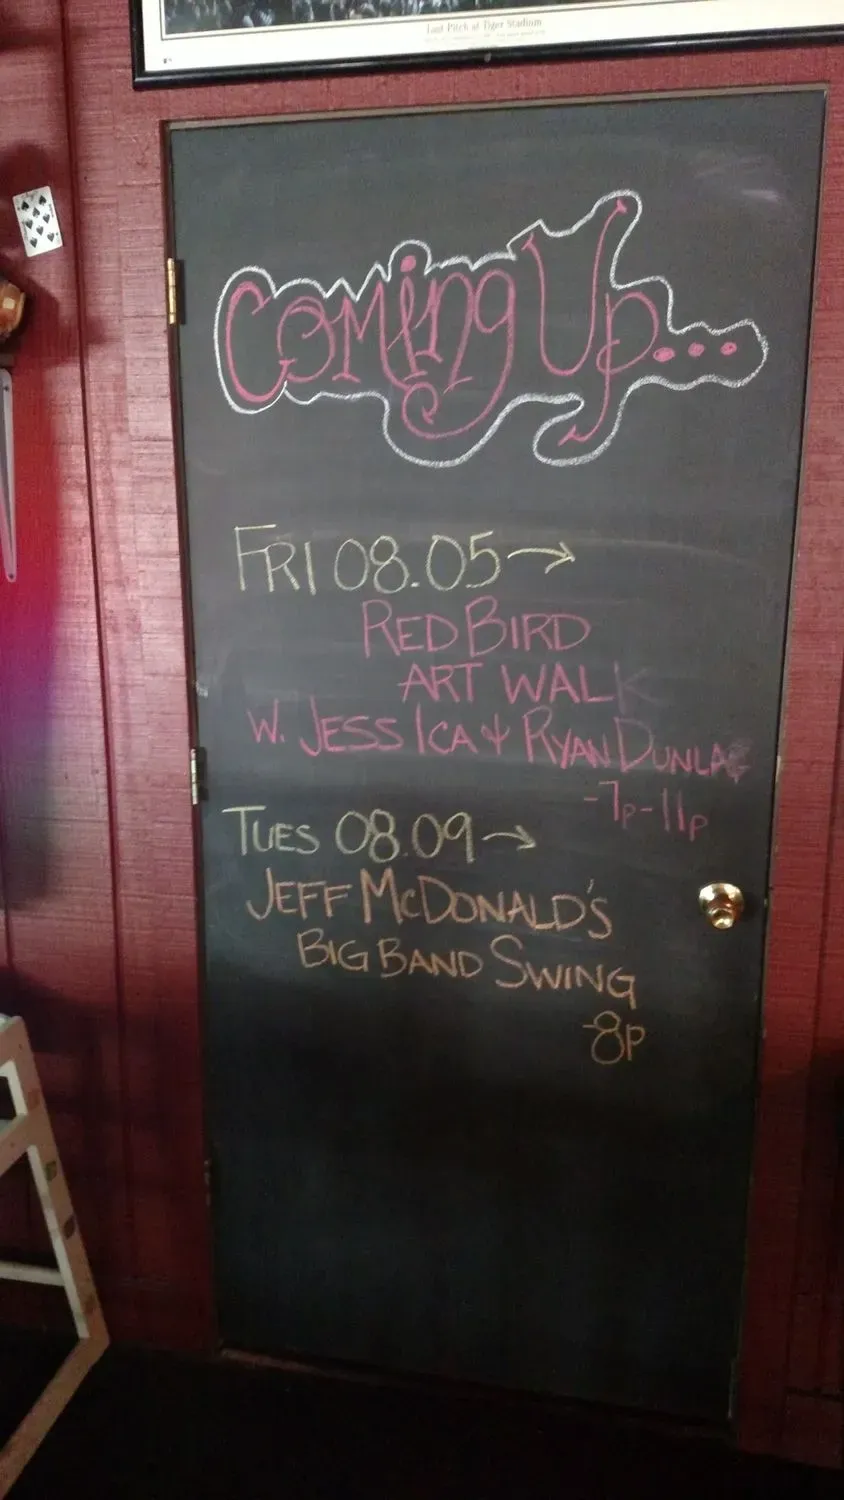 Last Pitch at Tiger Stadium
Coming Up...
FRI 08.05 →
RED BIRD
ART WALK
W. JESSICA & RYAN DUNLAP
-7P-11P
TUES 08.09 →
JEFF McDONALD'S
BIG BAND SWING
-8P